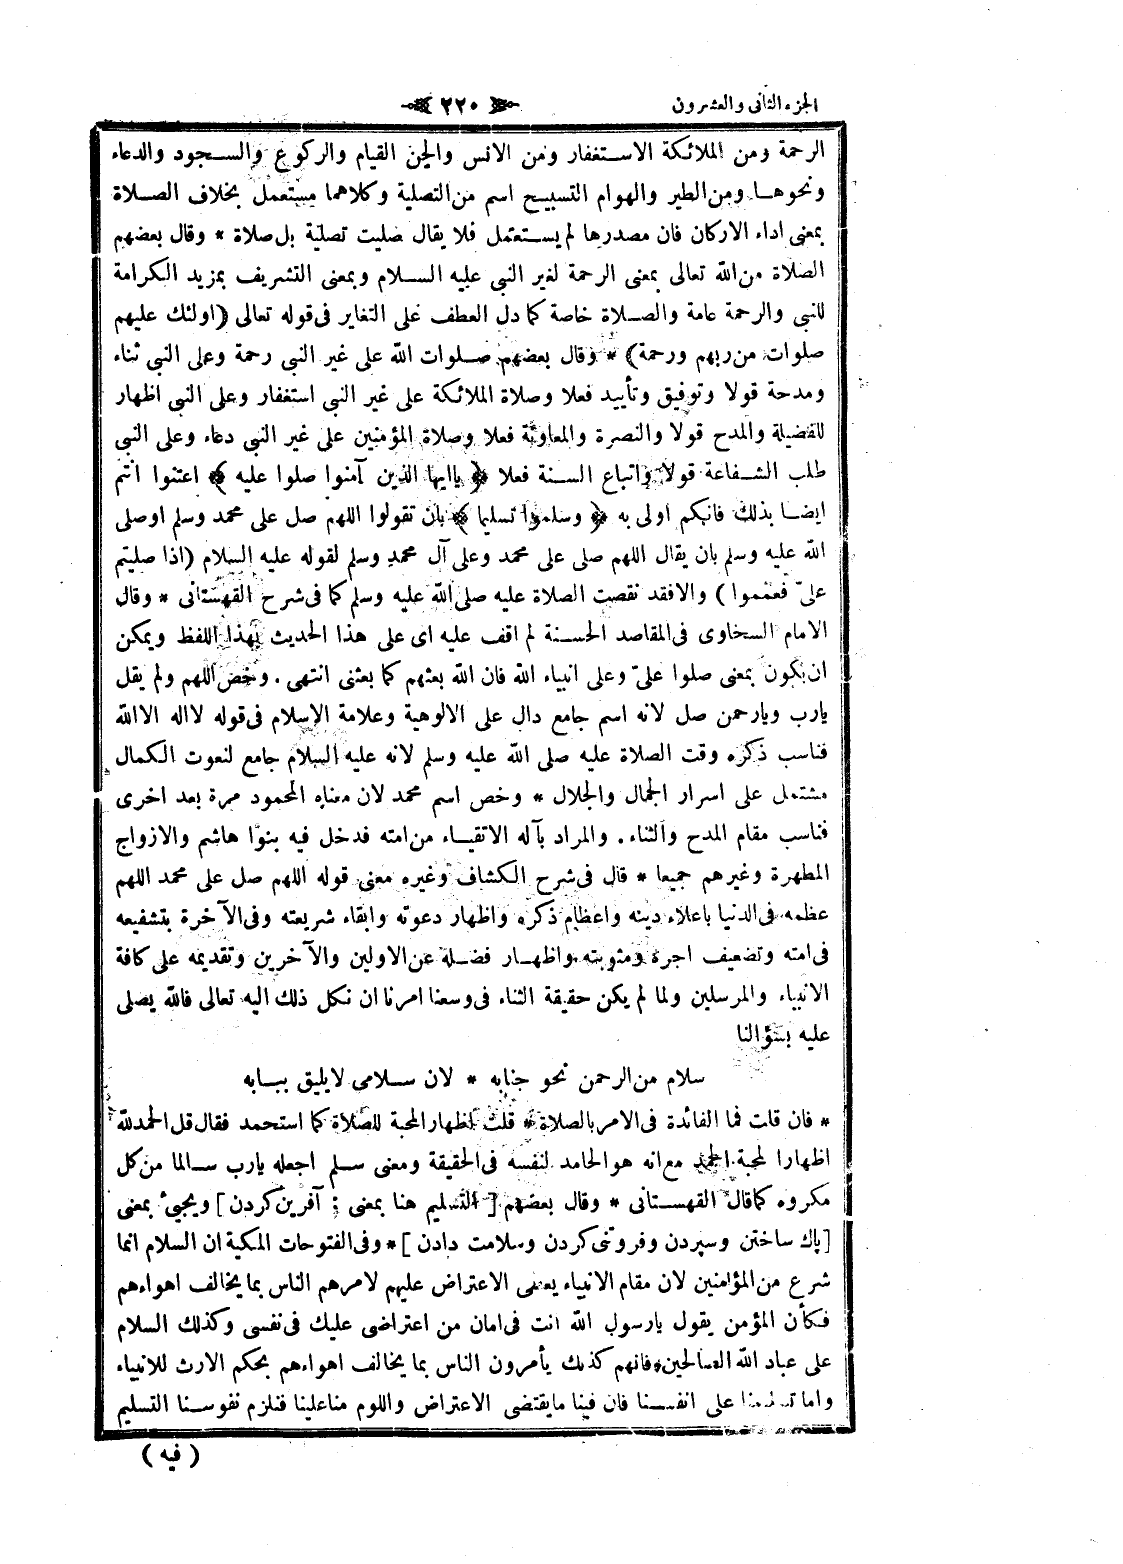 الجزء الثانى والعشرون
٢٢٠
الرحمة ومن الملائكة الاستغفار ومن الانس والجن القيام والركوع والسجود والدعاء
ونحوها ومن الطير والهوام التسبيح اسم من التصلية وكلاهما مستعمل بخلاف الصلاة
بمعنى اداء الاركان فان مصدرها لم يستعمل فلا يقال صليت تصلية بل صلاة * وقال بعضهم
الصلاة من الله تعالى بمعنى الرحمة لغير النبى عليه السلام وبمعنى التشريف بمزيد الكرامة
للنبى والرحمة عامة والصلاة خاصة كما دل العطف على التغاير فى قوله تعالى (اولئك عليهم
صلوات من ربهم ورحمة) * وقال بعضهم صلوات الله على غير النبى رحمة وعلى النبى ثناء
ومدحة قولا وتوفيق وتأييد فعلا وصلاة الملائكة على غير النبى استغفار وعلى النبى اظهار
للفضيلة والمدح قولا والنصرة والمعاونة فعلا وصلاة المؤمنين على غير النبى دعاء وعلى النبى
طلب الشفاعة قولا واتباع السنة فعلا ﴿ ياايها الذين آمنوا صلوا عليه ﴾ اعتنوا انتم
ايضا بذلك فانكم اولى به ﴿ وسلموا تسليما ﴾ بان تقولوا اللهم صل على محمد وسلم اوصلى
الله عليه وسلم بان يقال اللهم صلى على محمد وعلى آل محمد وسلم لقوله عليه السلام (اذا صليتم
علىّ فعمموا) والافقد نقصت الصلاة عليه صلى الله عليه وسلم كما فى شرح القهستانى * وقال
الامام السخاوى فى المقاصد الحسنة لم اقف عليه اى على هذا الحديث بهذا اللفظ ويمكن
ان يكون بمعنى صلوا علىّ وعلى انبياء الله فان الله بعثهم كما بعثنى انتهى . وخص اللهم ولم يقل
يارب ويارحمن صل لانه اسم جامع دال على الالوهية وعلامة الاسلام فى قوله لااله الاالله
فناسب ذكره وقت الصلاة عليه صلى الله عليه وسلم لانه عليه السلام جامع لنعوت الكمال
مشتمل على اسرار الجمال والجلال * وخص اسم محمد لان معناه المحمود مرة بعد اخرى
فناسب مقام المدح والثناء . والمراد بآله الاتقياء من امته فدخل فيه بنوا هاشم والازواج
المطهرة وغيرهم جميعا * قال فى شرح الكشاف وغيره معنى قوله اللهم صل على محمد اللهم
عظمه فى الدنيا باعلاء دينه واعظام ذكره واظهار دعوته وابقاء شريعته وفى الآخرة بتشفيعه
فى امته وتضعيف اجره ومثوبته واظهار فضله عن الاولين والآخرين وتقديمه على كافة
الانبياء والمرسلين ولما لم يكن حقيقة الثناء فى وسعنا امرنا ان نكل ذلك اليه تعالى فالله يصلى
عليه بسؤالنا
سلام من الرحمن نحو جنابه * لان سلامى لايليق ببابه
* فان قلت فما الفائدة فى الامر بالصلاة * قلت اظهار المحبة للصلاة كما استحمد فقال قل الحمدلله
اظهارا لمحبة الحمد مع انه هو الحامد لنفسه فى الحقيقة ومعنى سلم اجعله يارب سالما من كل
مكروه كما قال القهستانى * وقال بعضهم [ التسليم هنا بمعنى ; آفرين كردن ] ويجيئ بمعنى
[ پاك ساختن وسپردن وفروتنى كردن وسلامت دادن ] * وفى الفتوحات المكية ان السلام انما
شرع من المؤمنين لان مقام الانبياء يعطى الاعتراض عليهم لامرهم الناس بما يخالف اهواءهم
فكأن المؤمن يقول يارسول الله انت فى امان من اعتراضى عليك فى نفسى وكذلك السلام
على عباد الله الصالحين * فانهم كذلك يأمرون الناس بما يخالف اهواءهم بحكم الارث للانبياء
واما تسليمنا على انفسنا فان فينا مايقتضى الاعتراض واللوم منا علينا فنلزم نفوسنا التسليم
( فيه )